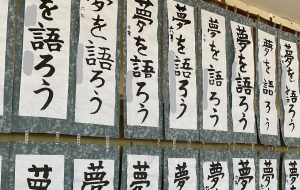 夢を語ろう
夢を語ろう
夢を語ろう
夢を語ろう
夢を語ろう
夢を語ろう
夢を語ろう
を語ろう
夢
夢
夢
夢
夢
夢
夢
夢